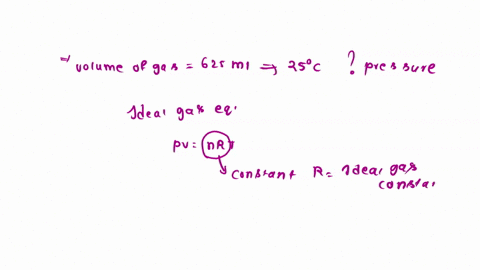 ⇒ volume of gas = 625 ml ⇒ 25°C ? pressure
Ideal gas eq.
pv = nRT
constant R = Ideal gas
constan